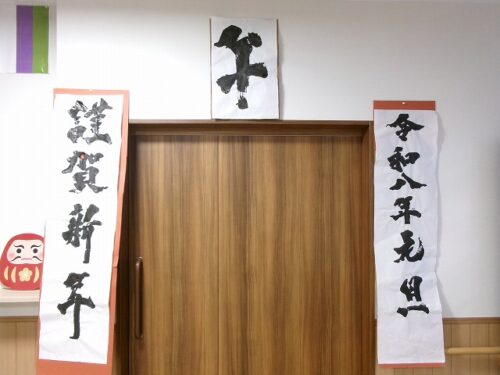 午
令和八年元旦
謹賀新年